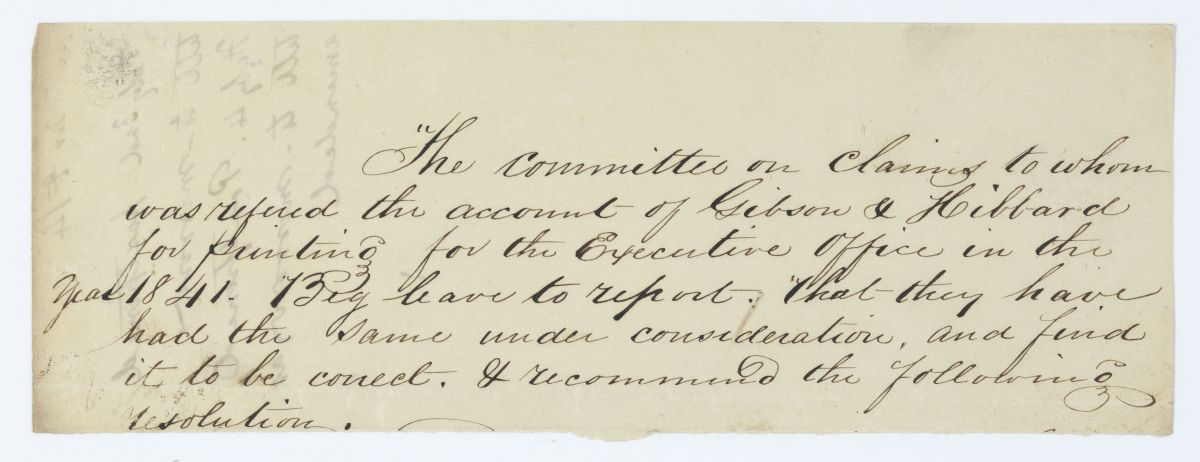 "The committee on claims to whom
was refered the account of Gibson & Hibbard
for printing for the Executive Office in the
year 1841. Beg leave to report. That they have
had the same under consideration, and find
it to be correct. & recommend the following
resolution.